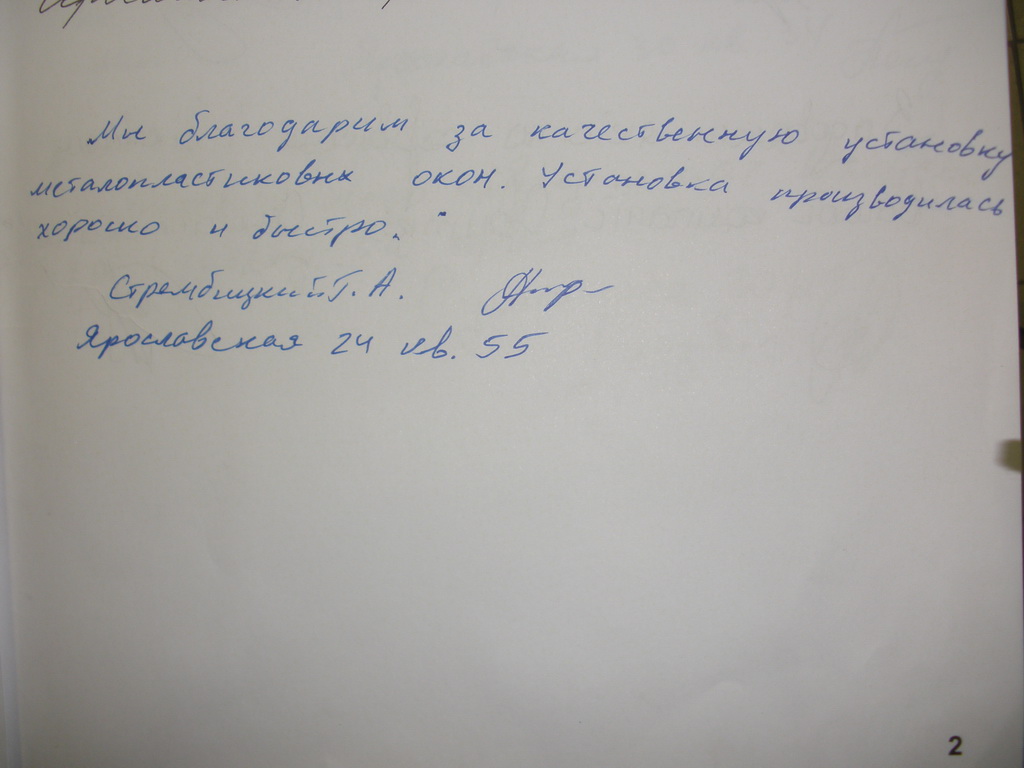 Мы благодарим за качественную установку
металопластиковых окон. Установка производилась
хорошо и быстро.
Стрембицкий Г. А.
Ярославская 24 кв. 55
2